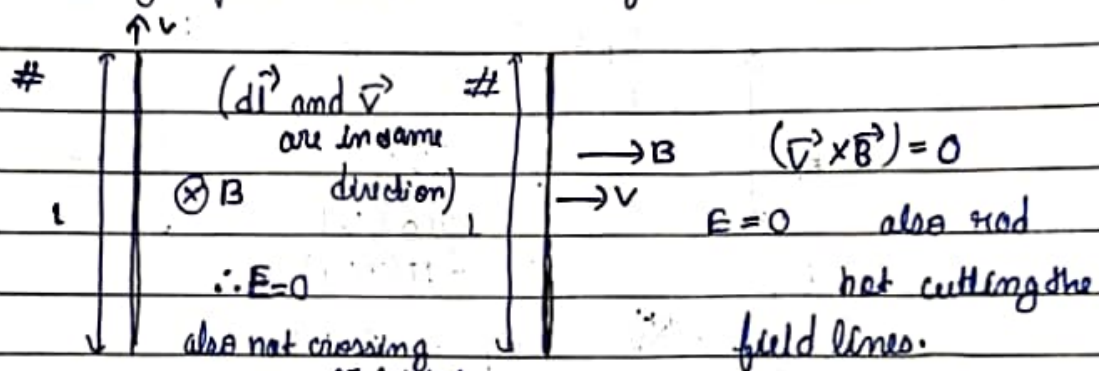 ↑ v:
# (dl⃗ and v⃗ #
are in same
direction)
⊗ B
l
l
∴ E=0
also not crossing
→ B (v⃗ × B⃗) = 0
→ V
E = 0 also rod
not cutting the
field lines.